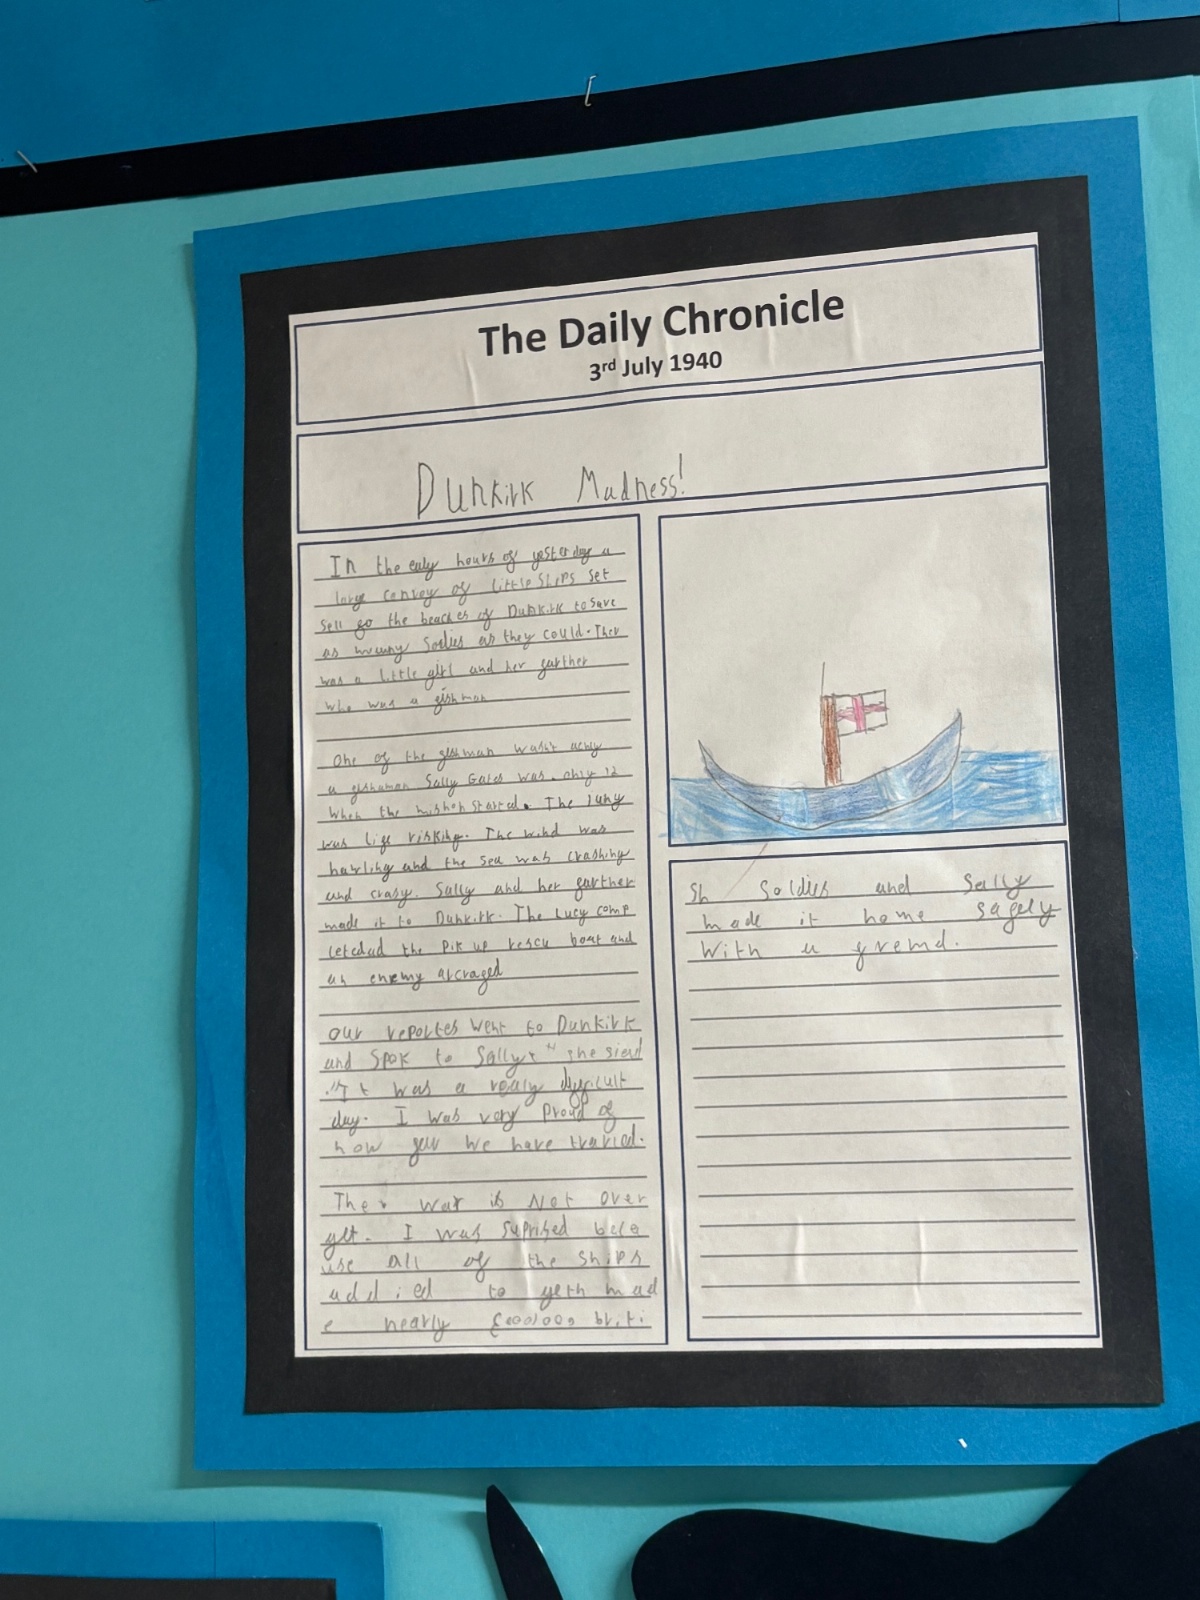 The Daily Chronicle
3rd July 1940
Dunkirk Madness!
In the ealy hours of yesterday a
large convoy of little Ships set
sell fo the beaches of Dunkirk to save
as many Soldies as they could. Ther
was a little girl and her farther
who was a fishman
One of the fishman wasn't
a fishaman Sally Gates was. only 12
when the mishon started. The
was life risking. The wind was
hawling and the sea was crashing
and crasy. Sally and her farther
made it to Dunkirk. The Lucy comp
letedad the Pik up rescu boat and
an enemy
our reportes went to Dunkirk
and Spok to Sally "she sied
"It was a realy difficult
day. I was very Proud of
how far we have travled.
The war is Not over
yet. I was Suprised beca
use all of the Ships
addied to geth mad
e nearly briti
Sh Soldies and Sally
made it home safely
with a